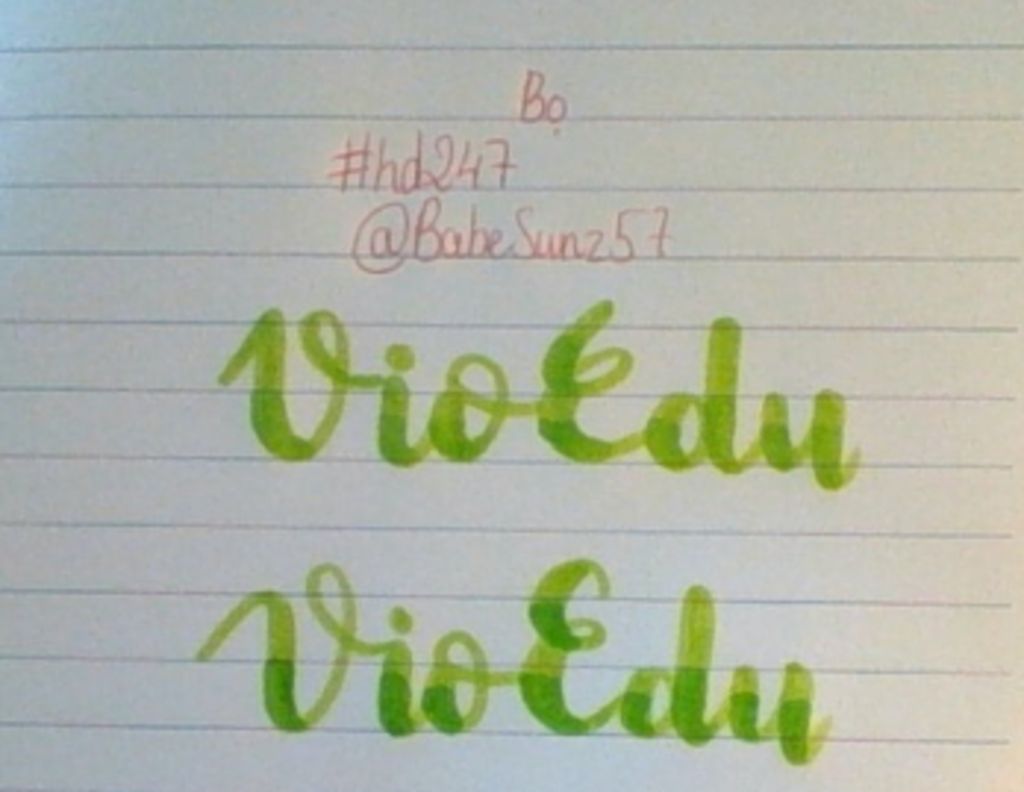 Bọ
#hd247
@BabeSunz57
VioEdu
VioEdu